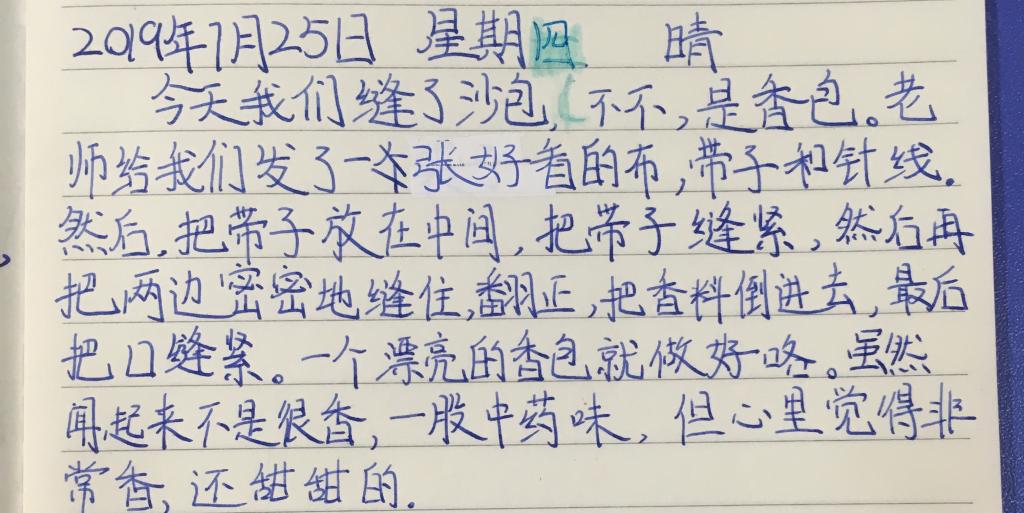 2019年7月25日 星期四 晴
今天我们缝了沙包,(不不,是香包。老
师给我们发了一张好看的布,带子和针线.
然后,把带子放在中间,把带子缝紧,然后再
把两边密密地缝住,翻正,把香料倒进去,最后
把口缝紧。一个漂亮的香包就做好咯。虽然
闻起来不是很香,一股中药味,但心里觉得非
常香,还甜甜的.